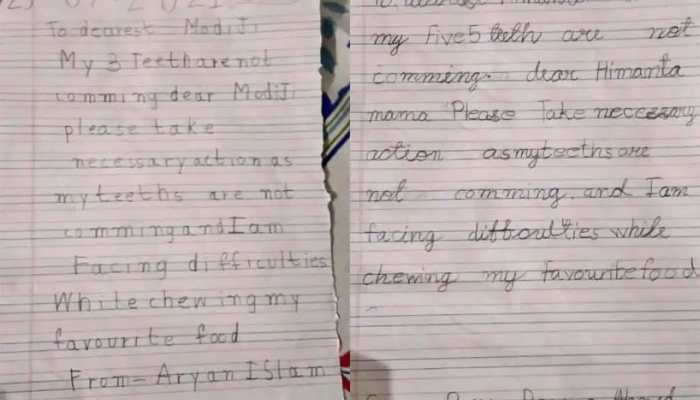 To dearest Modi Ji
My 3 Teeth are not
comming dear Modi Ji
please take
necessary action as
my teeths are not
comming and I am
Facing difficulties
While chewing my
favourite food
From - Aryan ISlam
my five 5 teeth are not
comming. dear Himanta
mama Please Take neccessary
action as my teeths are
not comming. and I am
facing difficulties while
chewing my favourite food